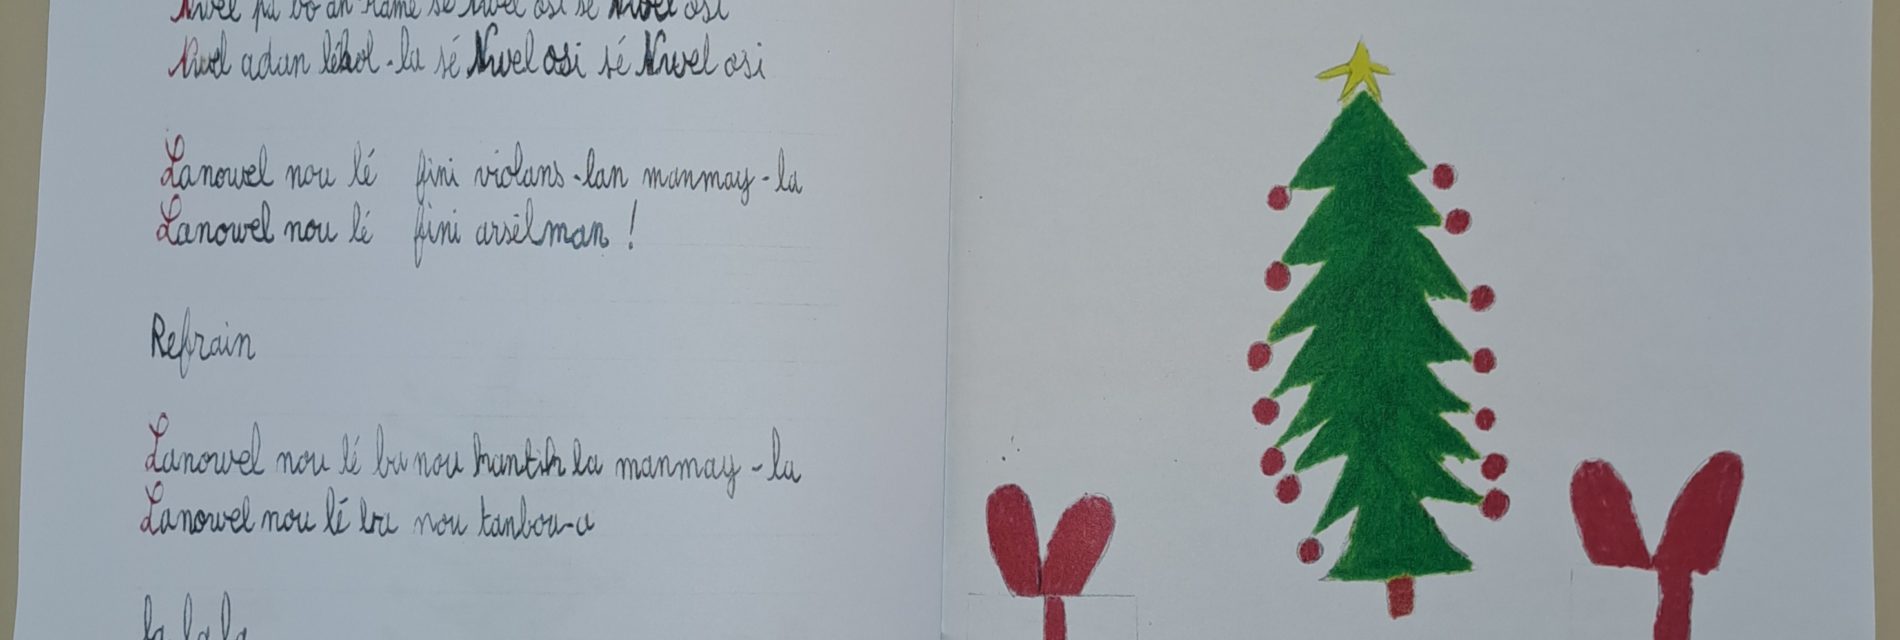 Nwel pa bò an kamé sé Nwel osi sé Nwel osi
Nwel adan lékol-la sé Nwel osi sé Nwel osi
Lanowel nou lé fini violans-lan manmay-la
Lanowel nou lé fini arsèlman !
Refrain
Lanowel nou lé ba nou kantik la manmay-la
Lanowel nou lé ba nou tanbou-a
la la la